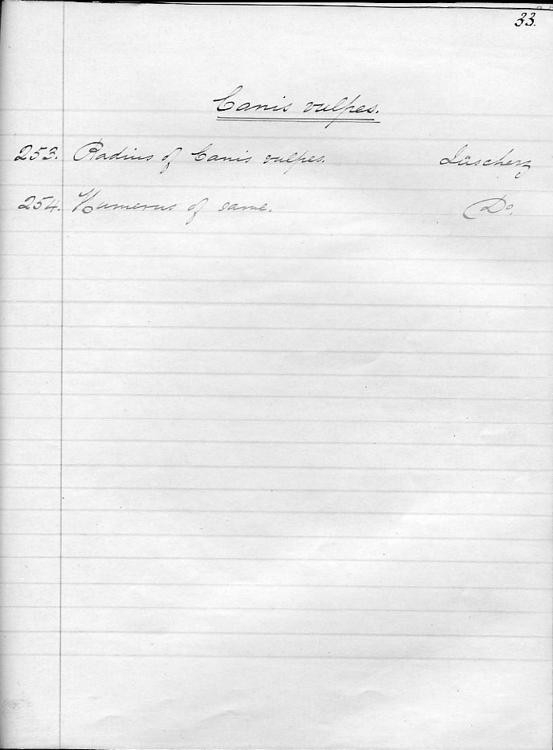 33.
Canis vulpes.
253. Radius of Canis vulpes.
254. Humerus of same. Do.